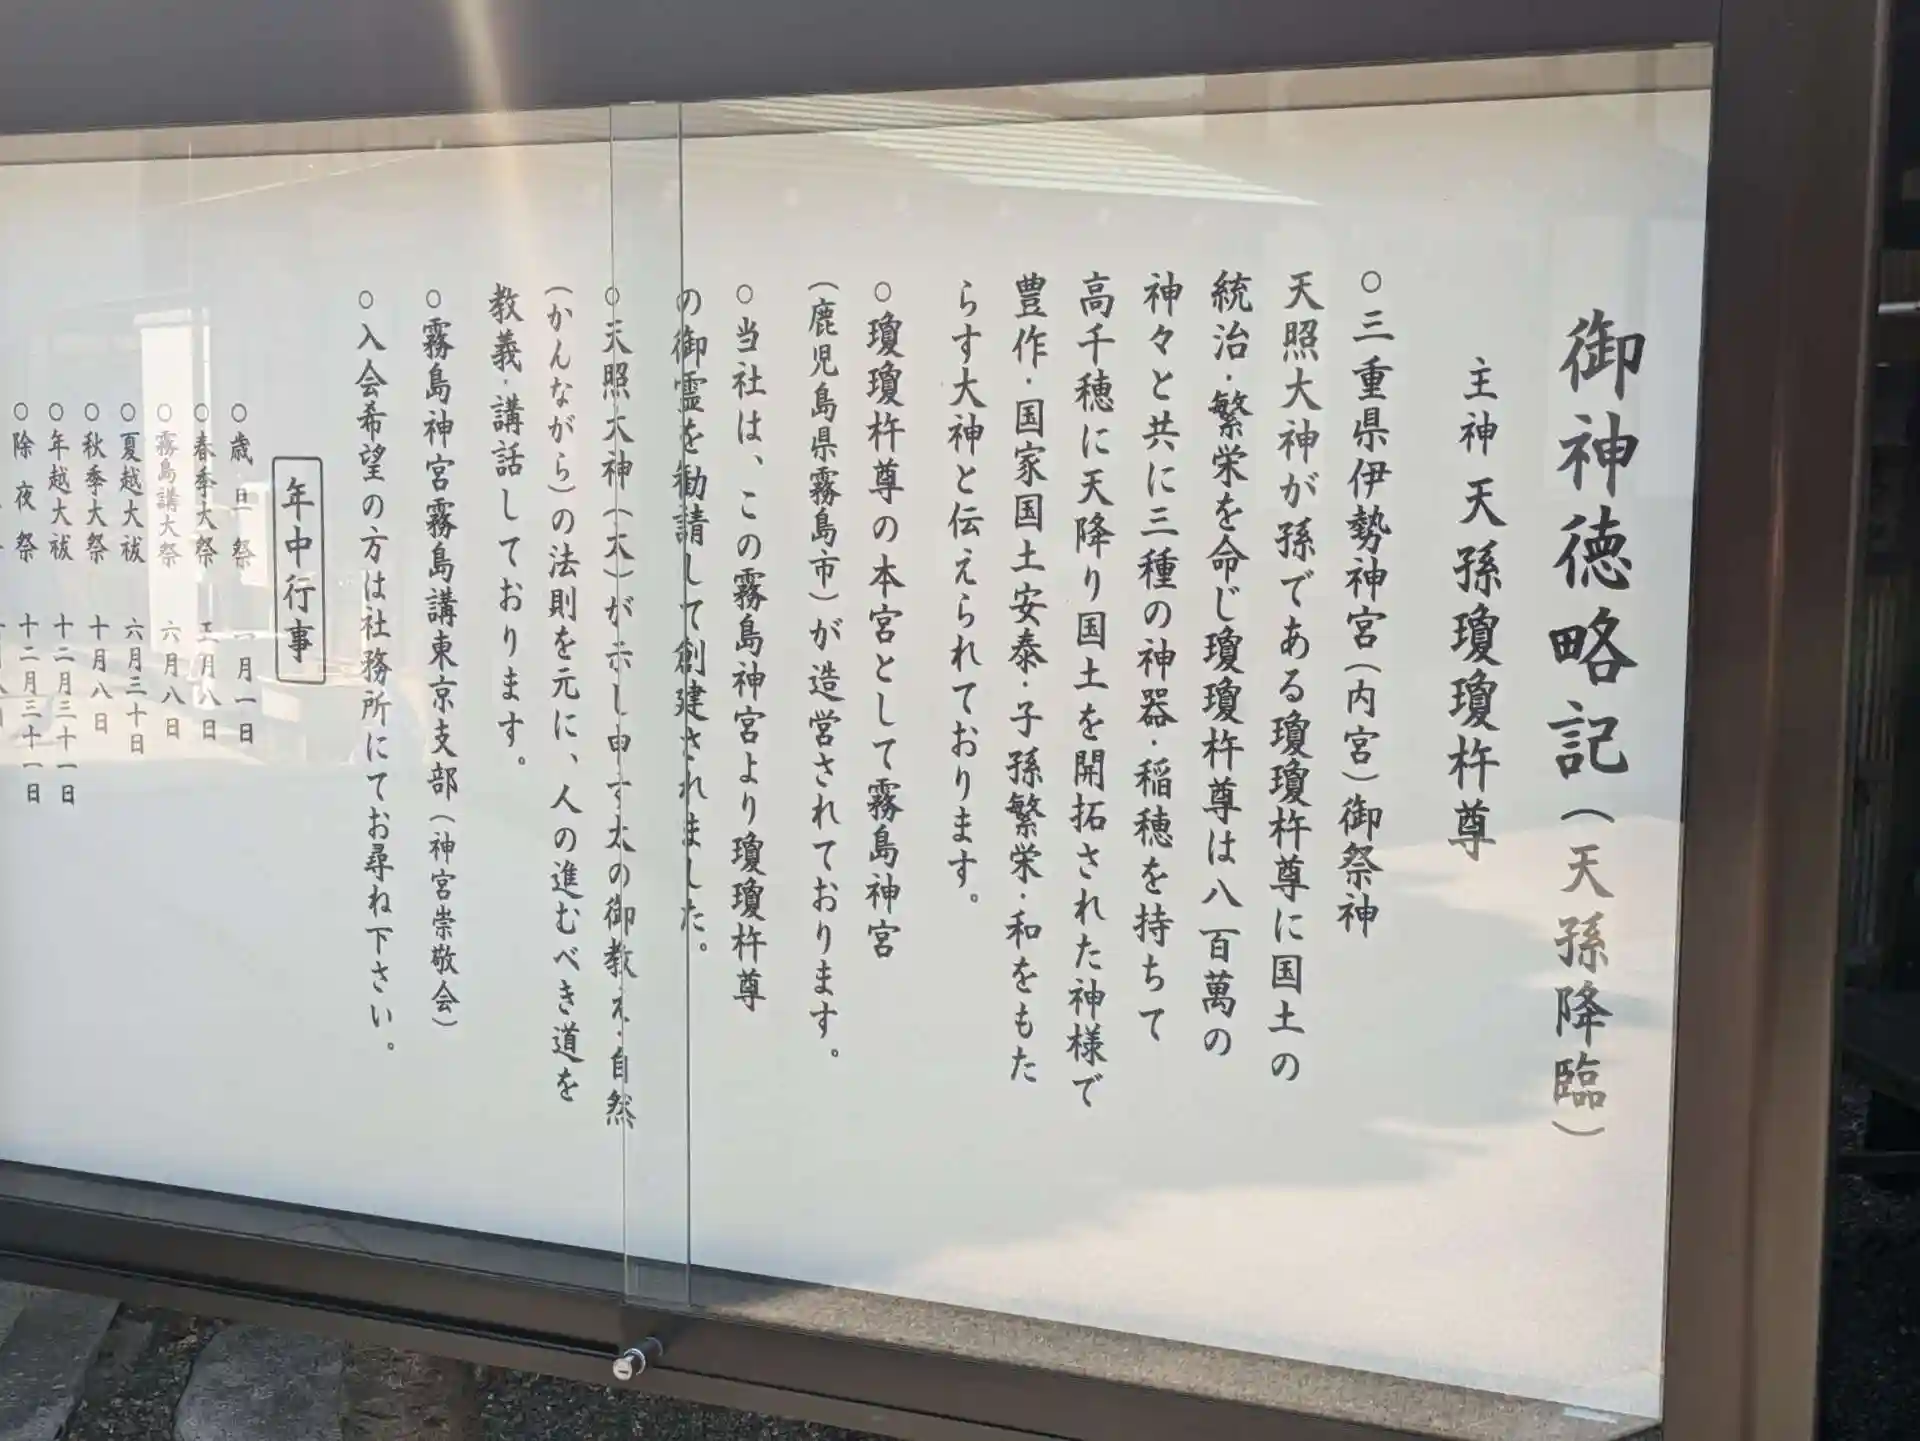 御神徳略記(天孫降臨)
主神 天孫瓊瓊杵尊
○三重県伊勢神宮(内宮)御祭神
天照大神が孫である瓊瓊杵尊に国土の
統治・繁栄を命じ瓊瓊杵尊は八百萬の
神々と共に三種の神器・稲穂を持ちて
高千穂に天降り国土を開拓された神様で
豊作・国家国土安泰・子孫繁栄・和をもた
らす大神と伝えられております。
○瓊瓊杵尊の本宮として霧島神宮
(鹿児島県霧島市)が造営されております。
○当社は、この霧島神宮より瓊瓊杵尊
の御霊を勧請して創建されました。
○天照大神(太)が示し申す太の御教え・自然
(かんながら)の法則を元に、人の進むべき道を
教義・講話しております。
○霧島神宮霧島講東京支部(神宮崇敬会)
○入会希望の方は社務所にてお尋ね下さい。
年中行事
○歳旦祭 一月一日
○春季大祭 五月八日
○霧島講大祭 六月八日
○夏越大祓 六月三十日
○秋季大祭 十月八日
○年越大祓 十二月三十一日
○除夜祭 十二月三十一日